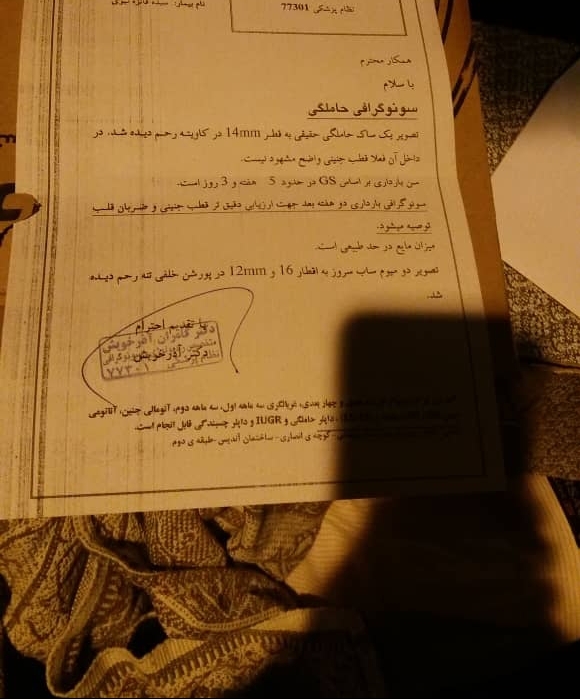 نام بیمار: سیده فائزه نبوی
نظام پزشکی 77301
همکار محترم
با سلام
سونوگرافی حاملگی
تصویر یک ساک حاملگی حقیقی به قطر 14mm در کاویته رحم دیده شد. در
داخل آن فعلا قطب جنینی واضح مشهود نیست.
سن بارداری بر اساس GS در حدود 5 هفته و 3 روز است.
سونوگرافی بارداری دو هفته بعد جهت ارزیابی دقیق تر قطب جنینی و ضربان قلب
توصیه میشود.
میزان مایع در حد طبیعی است.
تصویر دو میوم ساب سروز به اقطار 16 و 12mm در پورشن خلفی تنه رحم دیده
شد.
با تقدیم احترام
دکتر آذرخویش
دکتر کامران آذرخویش
نظام پزشکی ۷۷۳۰۱
و چهار بعدی، غربالگری سه ماهه اول، سه ماهه دوم، آنومالی جنین، آناتومی
داپلر حاملگی و IUGR و داپلر چسبندگی قابل انجام است.
کوچه ی انصاری - ساختمان آندیس - طبقه ی دوم